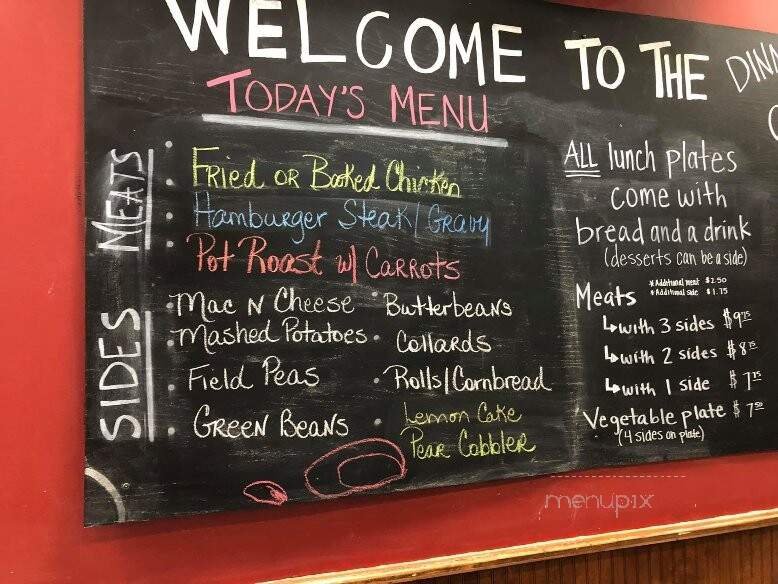 WELCOME TO THE
TODAY'S MENU
MEATS
• Fried or Baked Chicken
• Hamburger Steak/Gravy
• Pot Roast w/ Carrots
SIDES
• Mac N Cheese
• Mashed Potatoes
• Field Peas
• Green Beans
• Butterbeans
• Collards
• Rolls/Cornbread
• Lemon Cake
Pear Cobbler
ALL lunch plates
come with
bread and a drink
(desserts can be a side)
Meats
* Additional meat $2.50
* Additional side $1.75
↳with 3 sides $9.75
↳with 2 sides $8.75
↳with 1 side $7.75
Vegetable plate $7.50
(4 sides on plate)
menupix